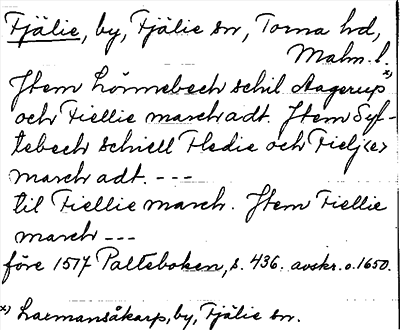 Fjälie, by, Fjälie sn, Torna hd,
Malm. l.
Jtem Lönnebech schil Aagerup x)
och Fiellie march adt. Jtem Syl-
tebech schiell Fledie och Fielj(e)
march adt. ---
til Fiellie march. Jtem Fiellie
march ---
före 1577 Palteboken, s. 436. avskr. o. 1650.
x) Laemansåkarp, by, Fjälie sn.